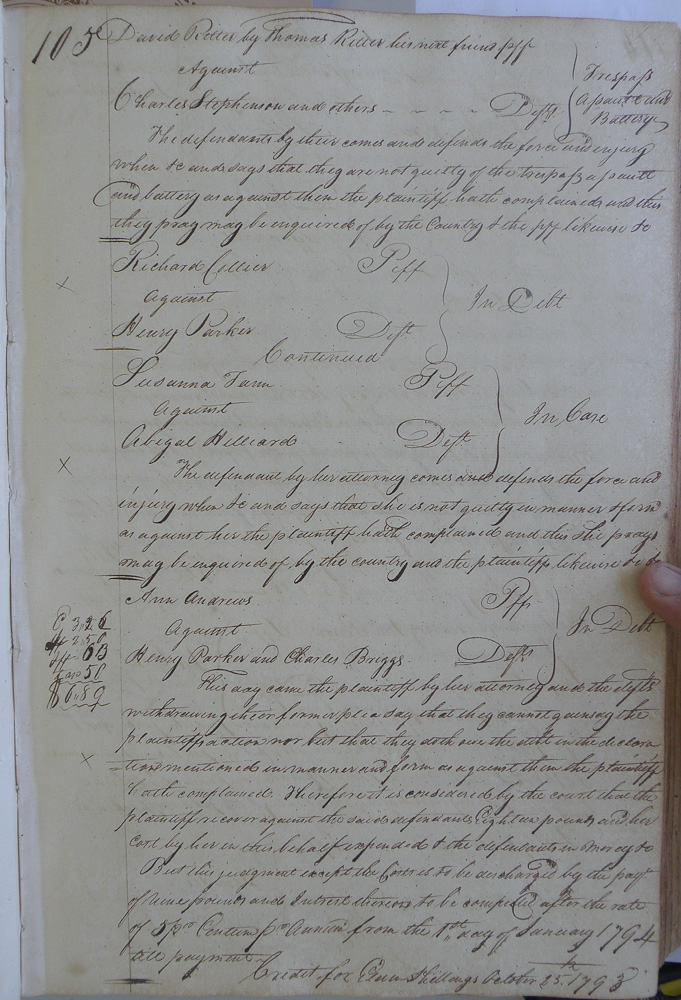 105
David Ritter by Thomas Ritter his next friend plff
Against
Charles Stephenson and others - - - - Deft
Trespass
assault and
Battery
The defendants by their comes and defends the force and injury
when &c and says that they are not guilty of the trespass assault
and battery as against them the plaintiff hath complained and this
they pray may be enquired of by the Country & the plff likewise &c
Richard Collier Plff
against
Henry Parker Deft
In Debt
Continued
Susanna Fann Plff
Against
Abigal Hilliard Deft
In Case
The defendant by her attorney comes and defends the force and
injury when &c and says that she is not guilty in manner & form
as against her the plaintiff hath complained and this she prays
may be enquired of by the country and the plaintiffs likewise &c
Ann Andrews Plff
Against
Henry Parker and Charles Briggs Defts
In Debt
This day came the plaintiff by her attorney and the defts
withdrawing their former plea say that they cannot gainsay the
plaintiffs action nor but that they doth owe the debt in the declara
tion mentioned in manner and form as against them the plaintiff
hath complained. Therefore it is considered by the court that the
plaintiff recover against the said defendants Eighteen pounds and her
cost by her in this behalf expended & the defendants in mercy &c
But this judgment except the Costs is to be discharged by the payt
of Nine pounds and Interest thereon to be computed after the rate
of 5 pr Centum pr Annum from the 1st day of January 1794
till payment.
Credit for Shillings October 25. 1793